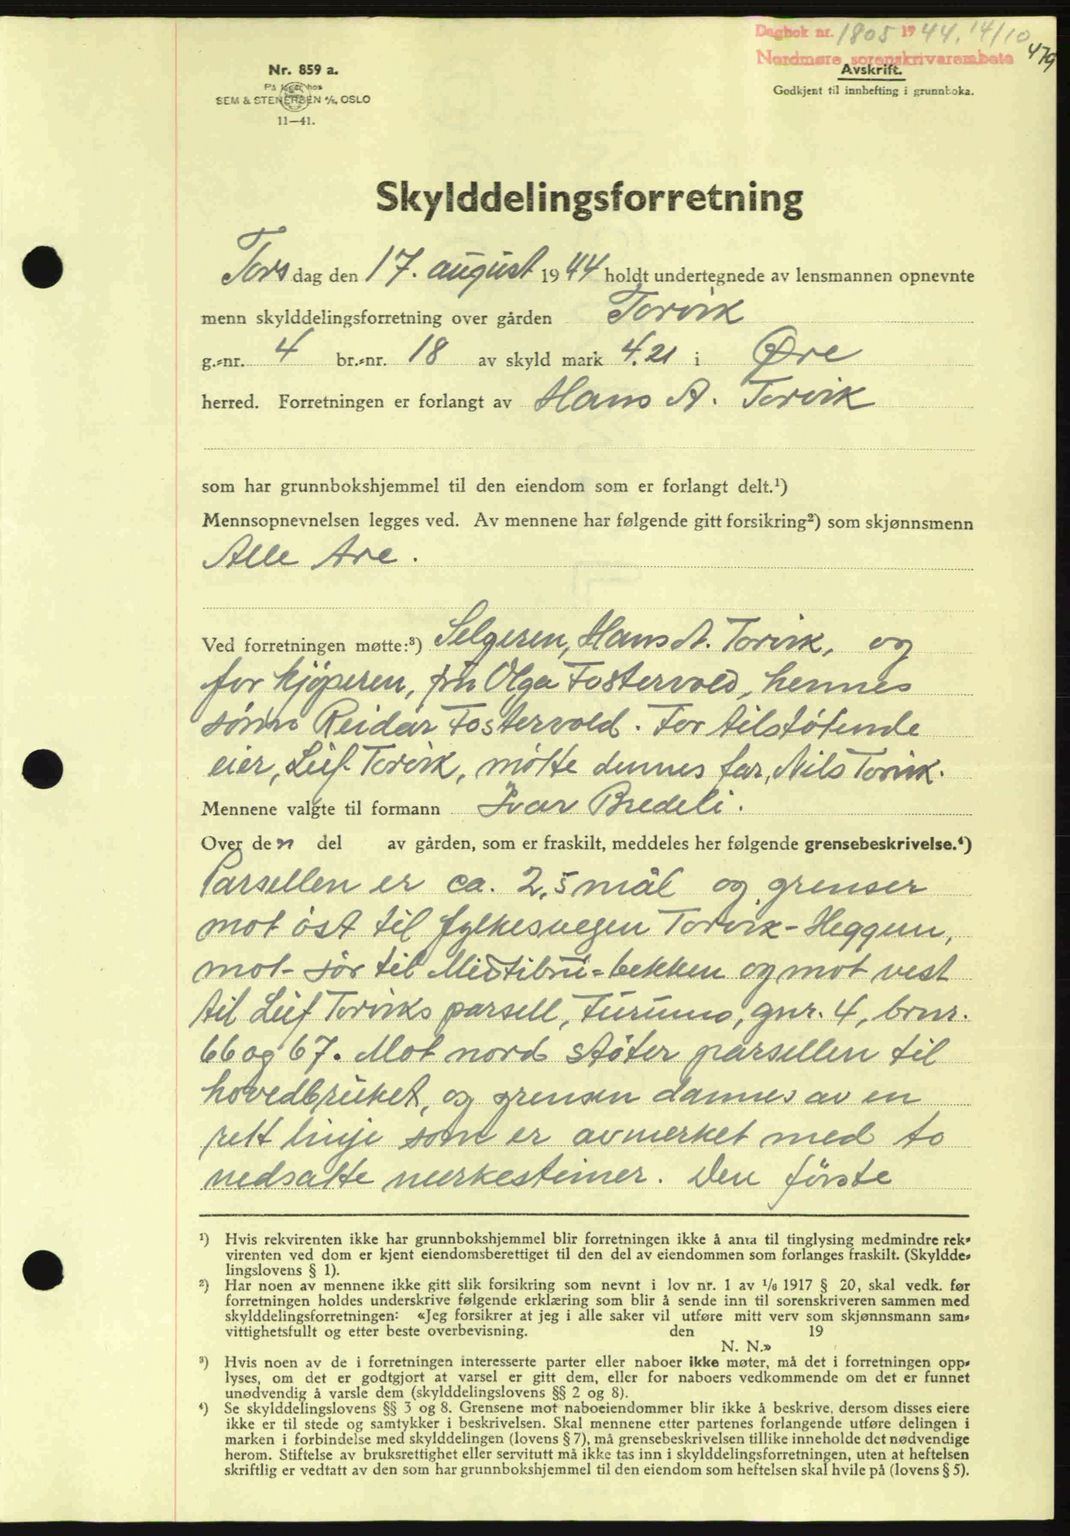 Dagbok nr. 1805 1944, 14/10
Nordmøre sorenskrivarembete
479
Nr. 859 a.
På lager hos
SEM & STENERSEN A/S, OSLO
11—41.
Avskrift.
Godkjent til innhefting i grunnboka.
Skylddelingsforretning
Torsdag den 17. august 1944 holdt undertegnede av lensmannen opnevnte
menn skylddelingsforretning over gården Torvik
g.-nr. 4 br.-nr. 18 av skyld mark 4.21 i Øre
herred. Forretningen er forlangt av Hans A. Torvik
som har grunnbokshjemmel til den eiendom som er forlangt delt.¹)
Mennsopnevnelsen legges ved. Av mennene har følgende gitt forsikring²) som skjønnsmenn
Alle tre.
Ved forretningen møtte:³) Selgeren, Hans A. Torvik, og
for kjøperen, fru Olga Fostervold, hennes
sønn Reidar Fostervold. For tilstøtende
eier, Leif Torvik, møtte dennes far, Nils Torvik.
Mennene valgte til formann Ivar Bredeli.
Over den del av gården, som er fraskilt, meddeles her følgende grensebeskrivelse.⁴)
Parsellen er ca. 2,5 mål og grenser
mot öst til fylkesvegen Torvik-Heggem,
mot sör til Midtibru-bekken og mot vest
til Leif Torviks parsell, Furumo, gnr. 4, brnr.
66 og 67. Mot nord støter parsellen til
hovedbruket, og grensen dannes av en
rett linje som er avmerket med to
nedsatte merkesteiner. Den förste
¹) Hvis rekvirenten ikke har grunnbokshjemmel blir forretningen ikke å anta til tinglysing medmindre rek-
virenten ved dom er kjent eiendomsberettiget til den del av eiendommen som forlanges fraskilt. (Skyldde-
lingslovens § 1).
²) Har noen av mennene ikke gitt slik forsikring som nevnt i lov nr. 1 av 1/6 1917 § 20, skal vedk. før
forretningen holdes underskrive følgende erklæring som blir å sende inn til sorenskriveren sammen med
skylddelingsforretningen: «Jeg forsikrer at jeg i alle saker vil utføre mitt verv som skjønnsmann sam-
vittighetsfullt og etter beste overbevisning. den 19
N. N.»
³) Hvis noen av de i forretningen interesserte parter eller naboer ikke møter, må det i forretningen opp-
lyses, om det er godtgjort at varsel er gitt dem, eller for naboers vedkommende om det er funnet
unødvendig å varsle dem (skylddelingslovens §§ 2 og 8).
⁴) Se skylddelingslovens §§ 3 og 8. Grensene mot naboeiendommer blir ikke å beskrive, dersom disses eiere
ikke er til stede og samtykker i beskrivelsen. Skal mennene etter partenes forlangende utføre delingen i
marken i forbindelse med skylddelingen (lovens § 7), må grensebeskrivelsen tillike inneholde det nødvendige
herom. Stiftelse av bruksrettighet eller servitutt må ikke tas inn i skylddelingsforretningen, uten at heftelsen
skriftlig er vedtatt av den som har grunnbokshjemmel til den eiendom som heftelsen skal hvile på (lovens § 5).